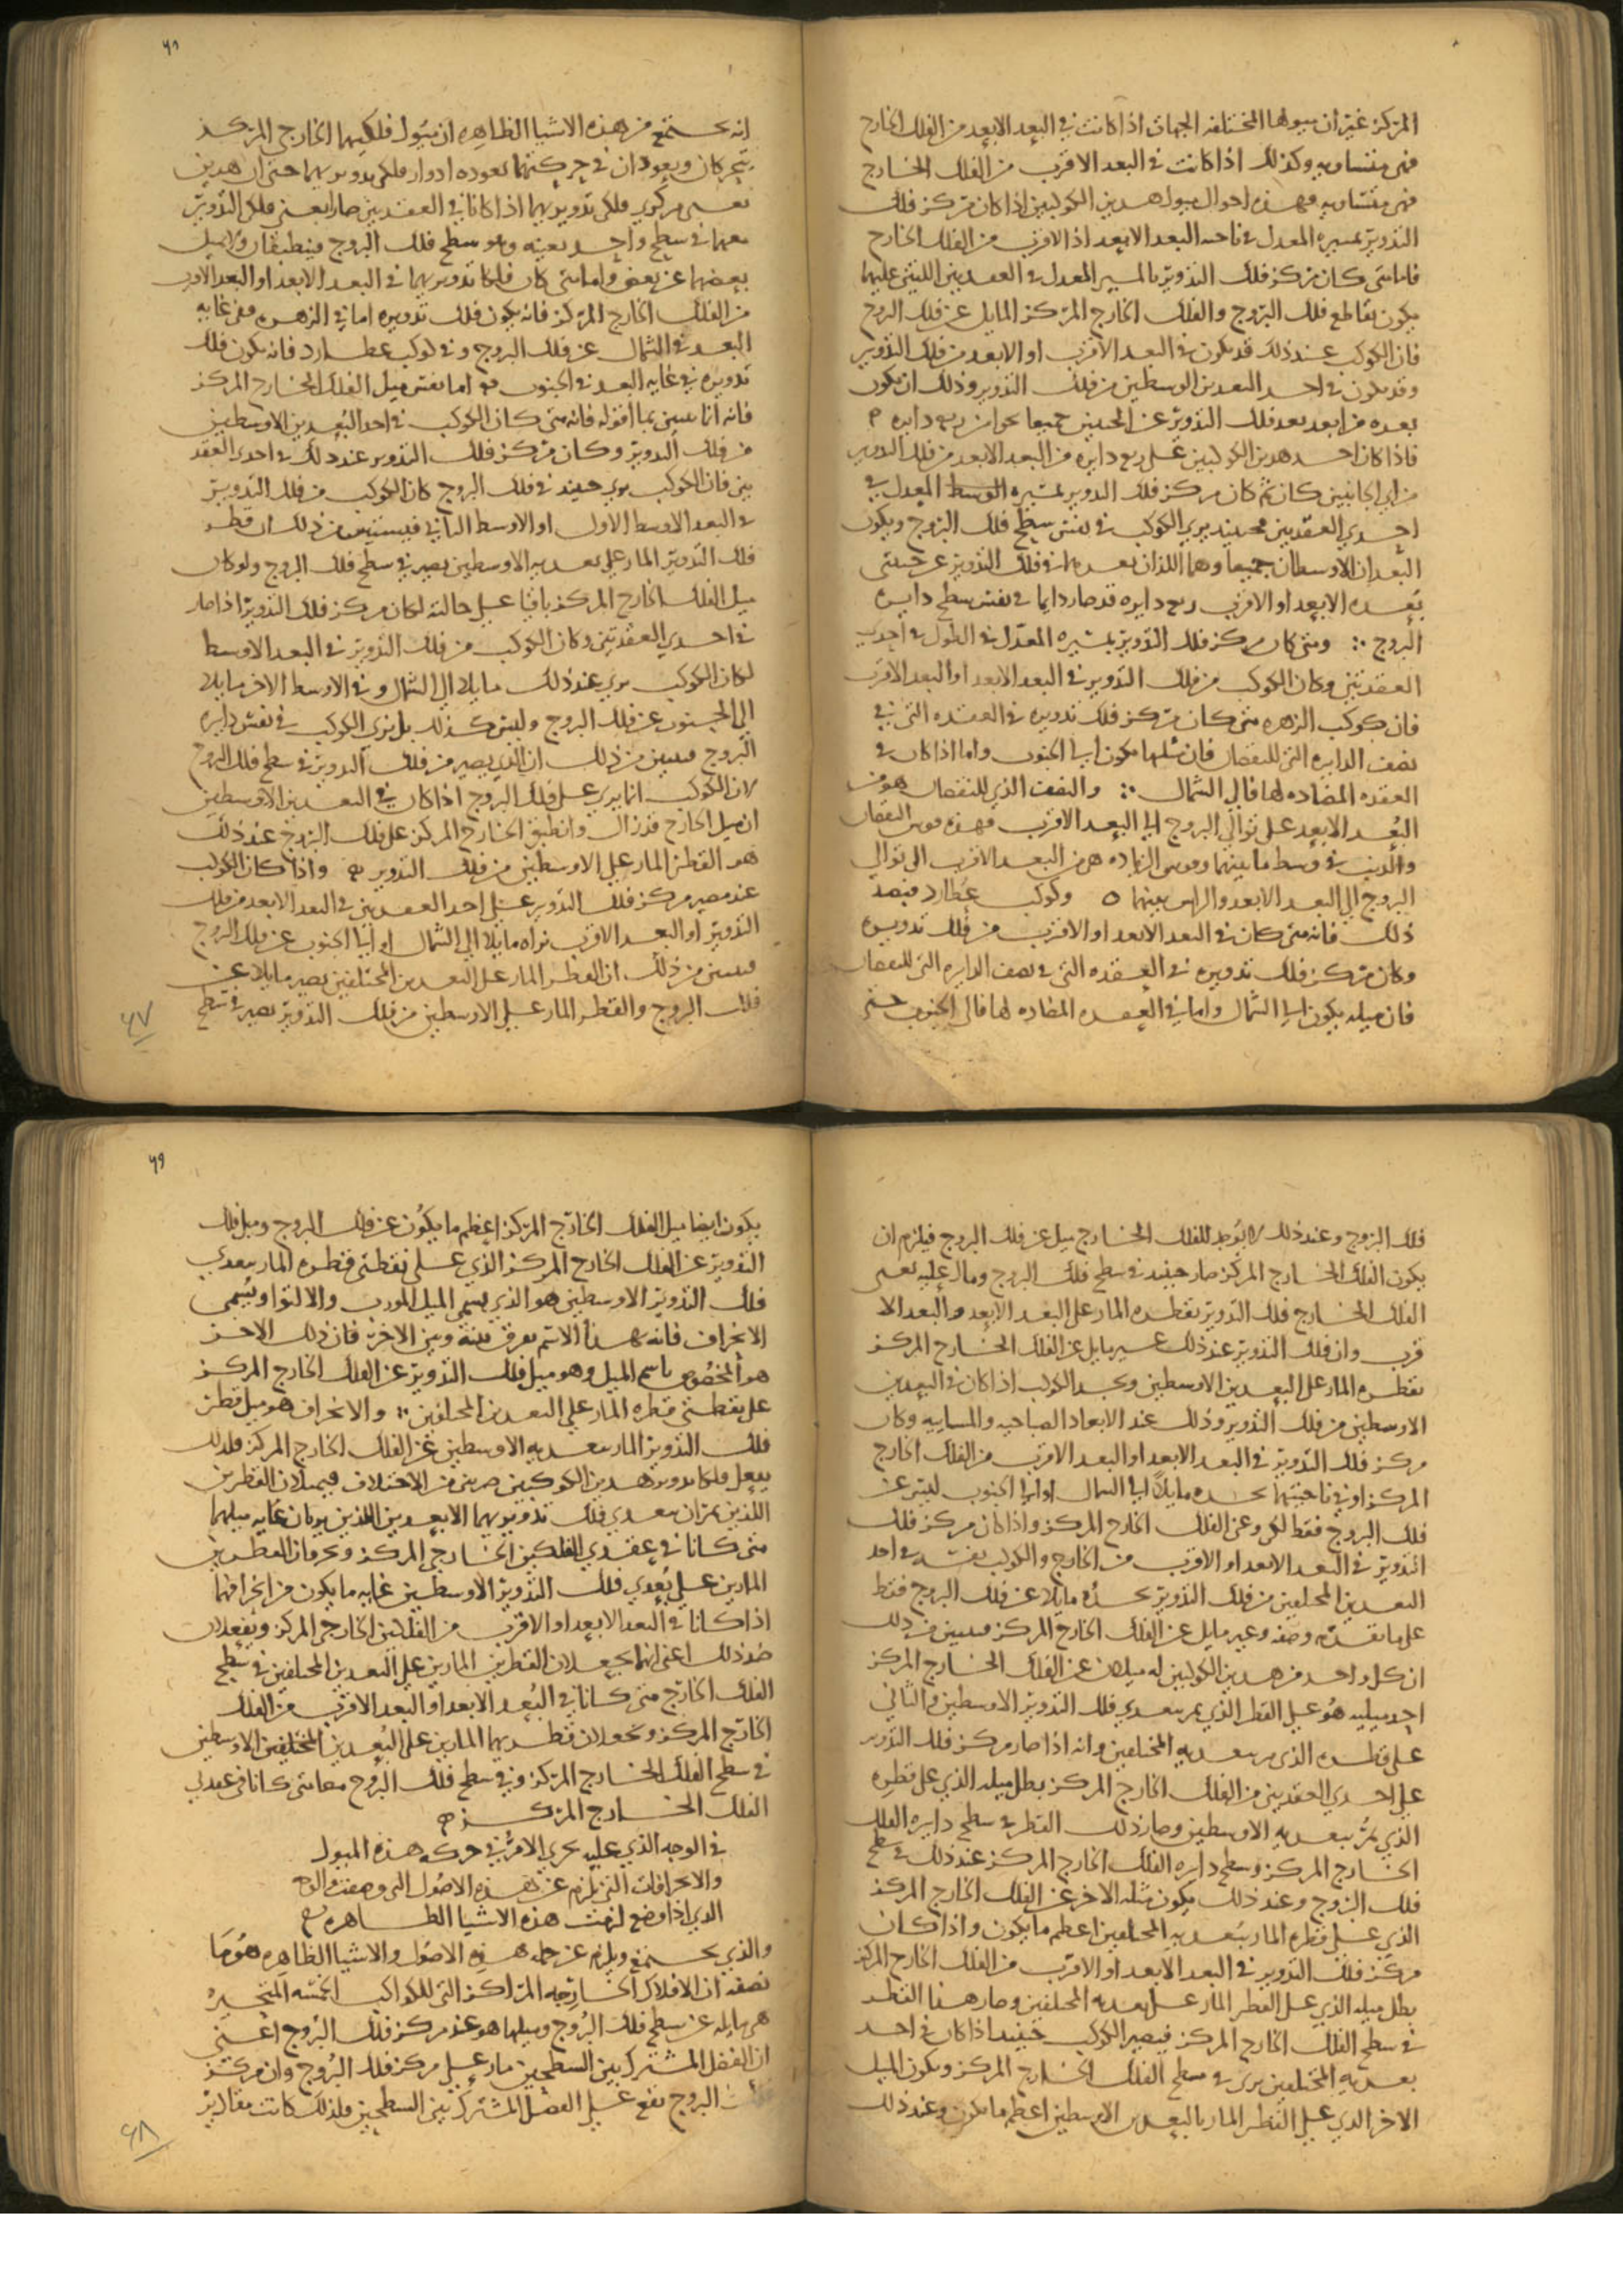 المركز غير ان ميولها المختلفه الجهات اذا كانت في البعد الابعد من الفلك الخارج
فهي متساويه وكذلك اذا كانت في البعد الاقرب من الفلك الخارج
فهي متساويه فهذه احوال ميول هذين الكوكبين اذا كان مركز فلك
التدوير بمسيره المعدل في ناحيه البعد الابعد اذ الاقرب من الفلك الخارج
فاما متى كان مركز فلك التدوير بالمسير المعدل في العقدتين اللتين عليهما
يكون تقاطع فلك البروج والفلك الخارج المركز المايل عن فلك البروج
فان الكوكب عند ذلك قد يكون في البعد الاقرب او الابعد من فلك التدوير
وقد يكون في احد البعدين الوسطين من فلك التدوير وذلك ان يكون
بعده من ابعد بعد فلك التدوير عن الجنبين جميعا نحوا من ربع دايره
فاذا كان احد هذين الكوكبين على ربع دايره من البعد الابعد من فلك التدوير
من اي الجانبين كان ثم كان مركز فلك التدوير بمسيره الوسط المعدل في
احدي العقدتين فحينيذ يرى الكوكب في نفس سطح فلك البروج ويكون
البعدان الاوسطان جميعا وهما اللذان بعدهما في فلك التدوير عن جنبتي
بعده الابعد او الاقرب ربع دايره قد صارا دايما في نفس سطح دايره
البروج ⁘ ومتى كان مركز فلك التدوير بمسيره المعدل في الطول في احدى
العقدتين وكان الكوكب من فلك التدوير في البعد الابعد او البعد الاقرب
فان كوكب الزهره متى كان مركز فلك تدويره في العقده التي في
نصف الدايره التي للنقصان فان ميلها يكون الى الجنوب واما اذا كان في
العقده المضاده لها فالى الشمال ⁘ والنصف الذي للنقصان هو من
البُعد الابعد على توالي البروج الى البعد الاقرب فهذه قوس النقصان
والذنب في وسط ما بينهما وقوس الزياده هي من البعد الاقرب الى توالي
البروج الى البعد الابعد والراس بينهما ٥ وكوكب عطارد فبضد
ذلك فانه متى كان في البعد الابعد او الاقرب من فلك تدويره
وكان مركز فلك تدويره في العقده التي في نصف الدايره التي للنقصان
فان ميله يكون الى الشمال واما في العقده المضاده لها فالى الجنوب حتى
٤٦
انه يجتمع من هذه الاشيا الظاهره ان ميول فلكيهما الخارجي المركز
يتحركان ويعودان في حركتهما بعوده ادوار فلكي تدويريهما حتى ان هذين
نعني مركزي فلكي تدويريهما اذا كانا في العقدتين صارا يعني فلكي التدوير
معهما في سطح واحد بعينه وهو سطح فلك البروج فينطبقان ولا يميل
بعضهما عن بعض واما متى كان فلكا تدويريهما في البعد الابعد او البعد الاقرب
من الفلك الخارج المركز فانه يكون فلك تدويره اما في الزهره ففي غايه
البعد في الشمال عن فلك البروج وفي كوكب عطارد فانه يكون فلك
تدويره في غايه البعد في الجنوب اما نفس ميل الفلك الخارج المركز
فانه انما يتبين بما اقوله فانه متى كان الكوكب في احد البُعدين الاوسطين
من فلك التدوير وكان مركز فلك التدوير عند ذلك في احدي العقد
تين فان الكوكب يرى حينيذ في فلك البروج كان الكوكب من فلك التدوير
في البعد الاوسط الاول او الاوسط الثاني فيستبين من ذلك ان قطر
فلك التدوير المار على بعديه الاوسطين يصير في سطح فلك البروج ولو كان
ميل الفلك الخارج المركز باقيا على حالته لكان مركز فلك التدوير اذا صار
في احدي العقدتين وكان الكوكب من فلك التدوير في البعد الاوسط
لكان الكوكب يرى عند ذلك مايلا الى الشمال وفي الاوسط الاخر مايلا
الى الجنوب عن فلك البروج وليس كذلك بل نرى الكوكب في نفس دايره
البروج فتبين من ذلك ان الذي يصير من فلك التدوير في سطح فلك البروج
لان الكوكب انما يرى على فلك البروج اذا كان في البعدين الاوسطين
ان ميل الخارج قد زال وانطبق الخارج المركز على فلك البروج عند ذلك
هو القطر المار على الاوسطين من فلك التدوير واذا كان الكوكب
عند مصير مركز فلك التدوير على احد العقدتين في البعد الابعد من فلك
التدوير او البعد الاقرب نراه مايلا الى الشمال او الى الجنوب عن فلك البروج
فتبين من ذلك ان القطر المار على البعدين المختلفين يصير مايلا عن
فلك البروج والقطر المار على الاوسطين من فلك التدوير يصير في سطح
٤٧
فلك البروج وعند ذلك لا يوجد للفلك الخارج ميل عن فلك البروج فيلزم ان
يكون الفلك الخارج المركز صار حينيذ في سطح فلك البروج ومال عليه نعني
الفلك الخارج فلك التدوير بقطره المار على البعد الابعد والبعد الا
قرب وان فلك التدوير عند ذلك غير مايل عن الفلك الخارج المركز
بقطره المار على البعدين الاوسطين ونجد الكوكب اذا كان في البعدين
الاوسطين من فلك التدوير وذلك عند الابعاد الصباحيه والمساييه وكان
مركز فلك التدوير في البعد الابعد او البعد الاقرب من الفلك الخارج
المركز او في ناحيتهما نجده مايلاً الى الشمال او الى الجنوب ليس عن
فلك البروج فقط لكن وعن الفلك الخارج المركز واذا كان مركز فلك
التدوير في البعد الابعد او الاقرب من الخارج والكوكب نفسه في احد
البعدين المختلفين من فلك التدوير نجده مايلا عن فلك البروج فقط
على ما تقدم وصفه وغير مايل عن الفلك الخارج المركز فتبين من ذلك
ان كل واحد من هذين الكوكبين له ميلان عن الفلك الخارج المركز
احد ميليه هُو على القطر الذي يمر ببعدي فلك التدوير الاوسطين والثاني
على قطره الذي يمر ببعديه المختلفين وانه اذا صار مركز فلك التدوير
على احدي العقدتين من الفلك الخارج المركز بطل ميله الذي على قطره
الذي يمر ببعديه الاوسطين وصار ذلك القطر في سطح دايره الفلك
الخارج المركز وسطح دايره الفلك الخارج المركز عند ذلك في سطح
فلك البروج وعند ذلك يكون ميله الاخر عن الفلك الخارج المركز
الذي على قطره المار ببُعديه المختلفين اعظم ما يكون واذا كان
مركز فلك التدوير في البعد الابعد او الاقرب من الفلك الخارج المركز
بطل ميله الذي على القطر المار على بعديه المختلفين وصار هذا القطر
في سطح الفلك الخارج المركز فيصير الكوكب حينيذ اذا كان في احد
بعديه المختلفين يرى في سطح الفلك الخارج المركز ويكون الميل
الاخر الذي على القطر المار بالبعدين الاوسطين اعظم ما يكون وعند ذلك
٤٩
يكون ايضا ميل الفلك الخارج المركز اعظم ما يكُون عن فلك البروج وميل فلك
التدوير عن الفلك الخارج المركز الذي على نقطتي قطره المار ببعدي
فلك التدوير الاوسطين هو الذي يسمى الميل المورب والالتوا ويُسمى
الانحراف فانه بهذا الاسم يفرق بينه وبين الاخر فان ذلك الاخر
هو المخصُوص باسم الميل وهو ميل فلك التدوير عن الفلك الخارج المركز
على نقطتي قطره المار على البعدين المختلفين ⁘ والانحراف هو ميل قطر
فلك التدوير المار ببعديه الاوسطين عن الفلك الخارج المركز فلذلك
يفعل فلكا تدوير هذين الكوكبين ضربين من الاختلاف فيميلان القطرين
اللذين يمران ببعدي فلك تدويريهما الابعدين اللذين يريان غايه ميلهما
متى كانا في عقدتي الفلكين الخارجي المركز ويحرفان القطرين
المارين على بُعدي فلك التدوير الاوسطين غايه ما يكون من انحرافهما
اذا كانا في البعد الابعد او الاقرب من الفلكين الخارجي المركز ويفعلان
ضد ذلك اعني انهما يجعلان القطرين المارين على البعدين المختلفين في سطح
الفلك الخارج متى كانا في البُعد الابعد او البعد الاقرب من الفلك
الخارج المركز ويجعلان قطريهما المارين على البُعدين المختلفين الاوسطين
في سطح الفلك الخارج المركز وفي سطح فلك البروج معا متى كانا في عقدتي
الفلك الخارج المركز
في الوجه الذي عليه يجري الامر في حركه هذه الميول
والانحرافات التي تلزم عن هذه الاصُول التي وصفت والوجه
الذي اذا وضع لزمت هذه الاشيا الظاهره
والذي يجتمع ويلزم عن جمله هذه الاصُول والاشيا الظاهره هُو مَا
نصفه ان الافلاك الخارجه المراكز التي للكواكب الخمسه المتحيره
هي مايله عن سطح فلك البُروج وميلها هو عند مركز فلك البُروج اعني
ان الفصل المشترك بين السطحين مار على مركز فلك البُروج وان مركز
البروج يقع على الفصل المشترك بين السطحين فلذلك كانت مقادير
٤٨